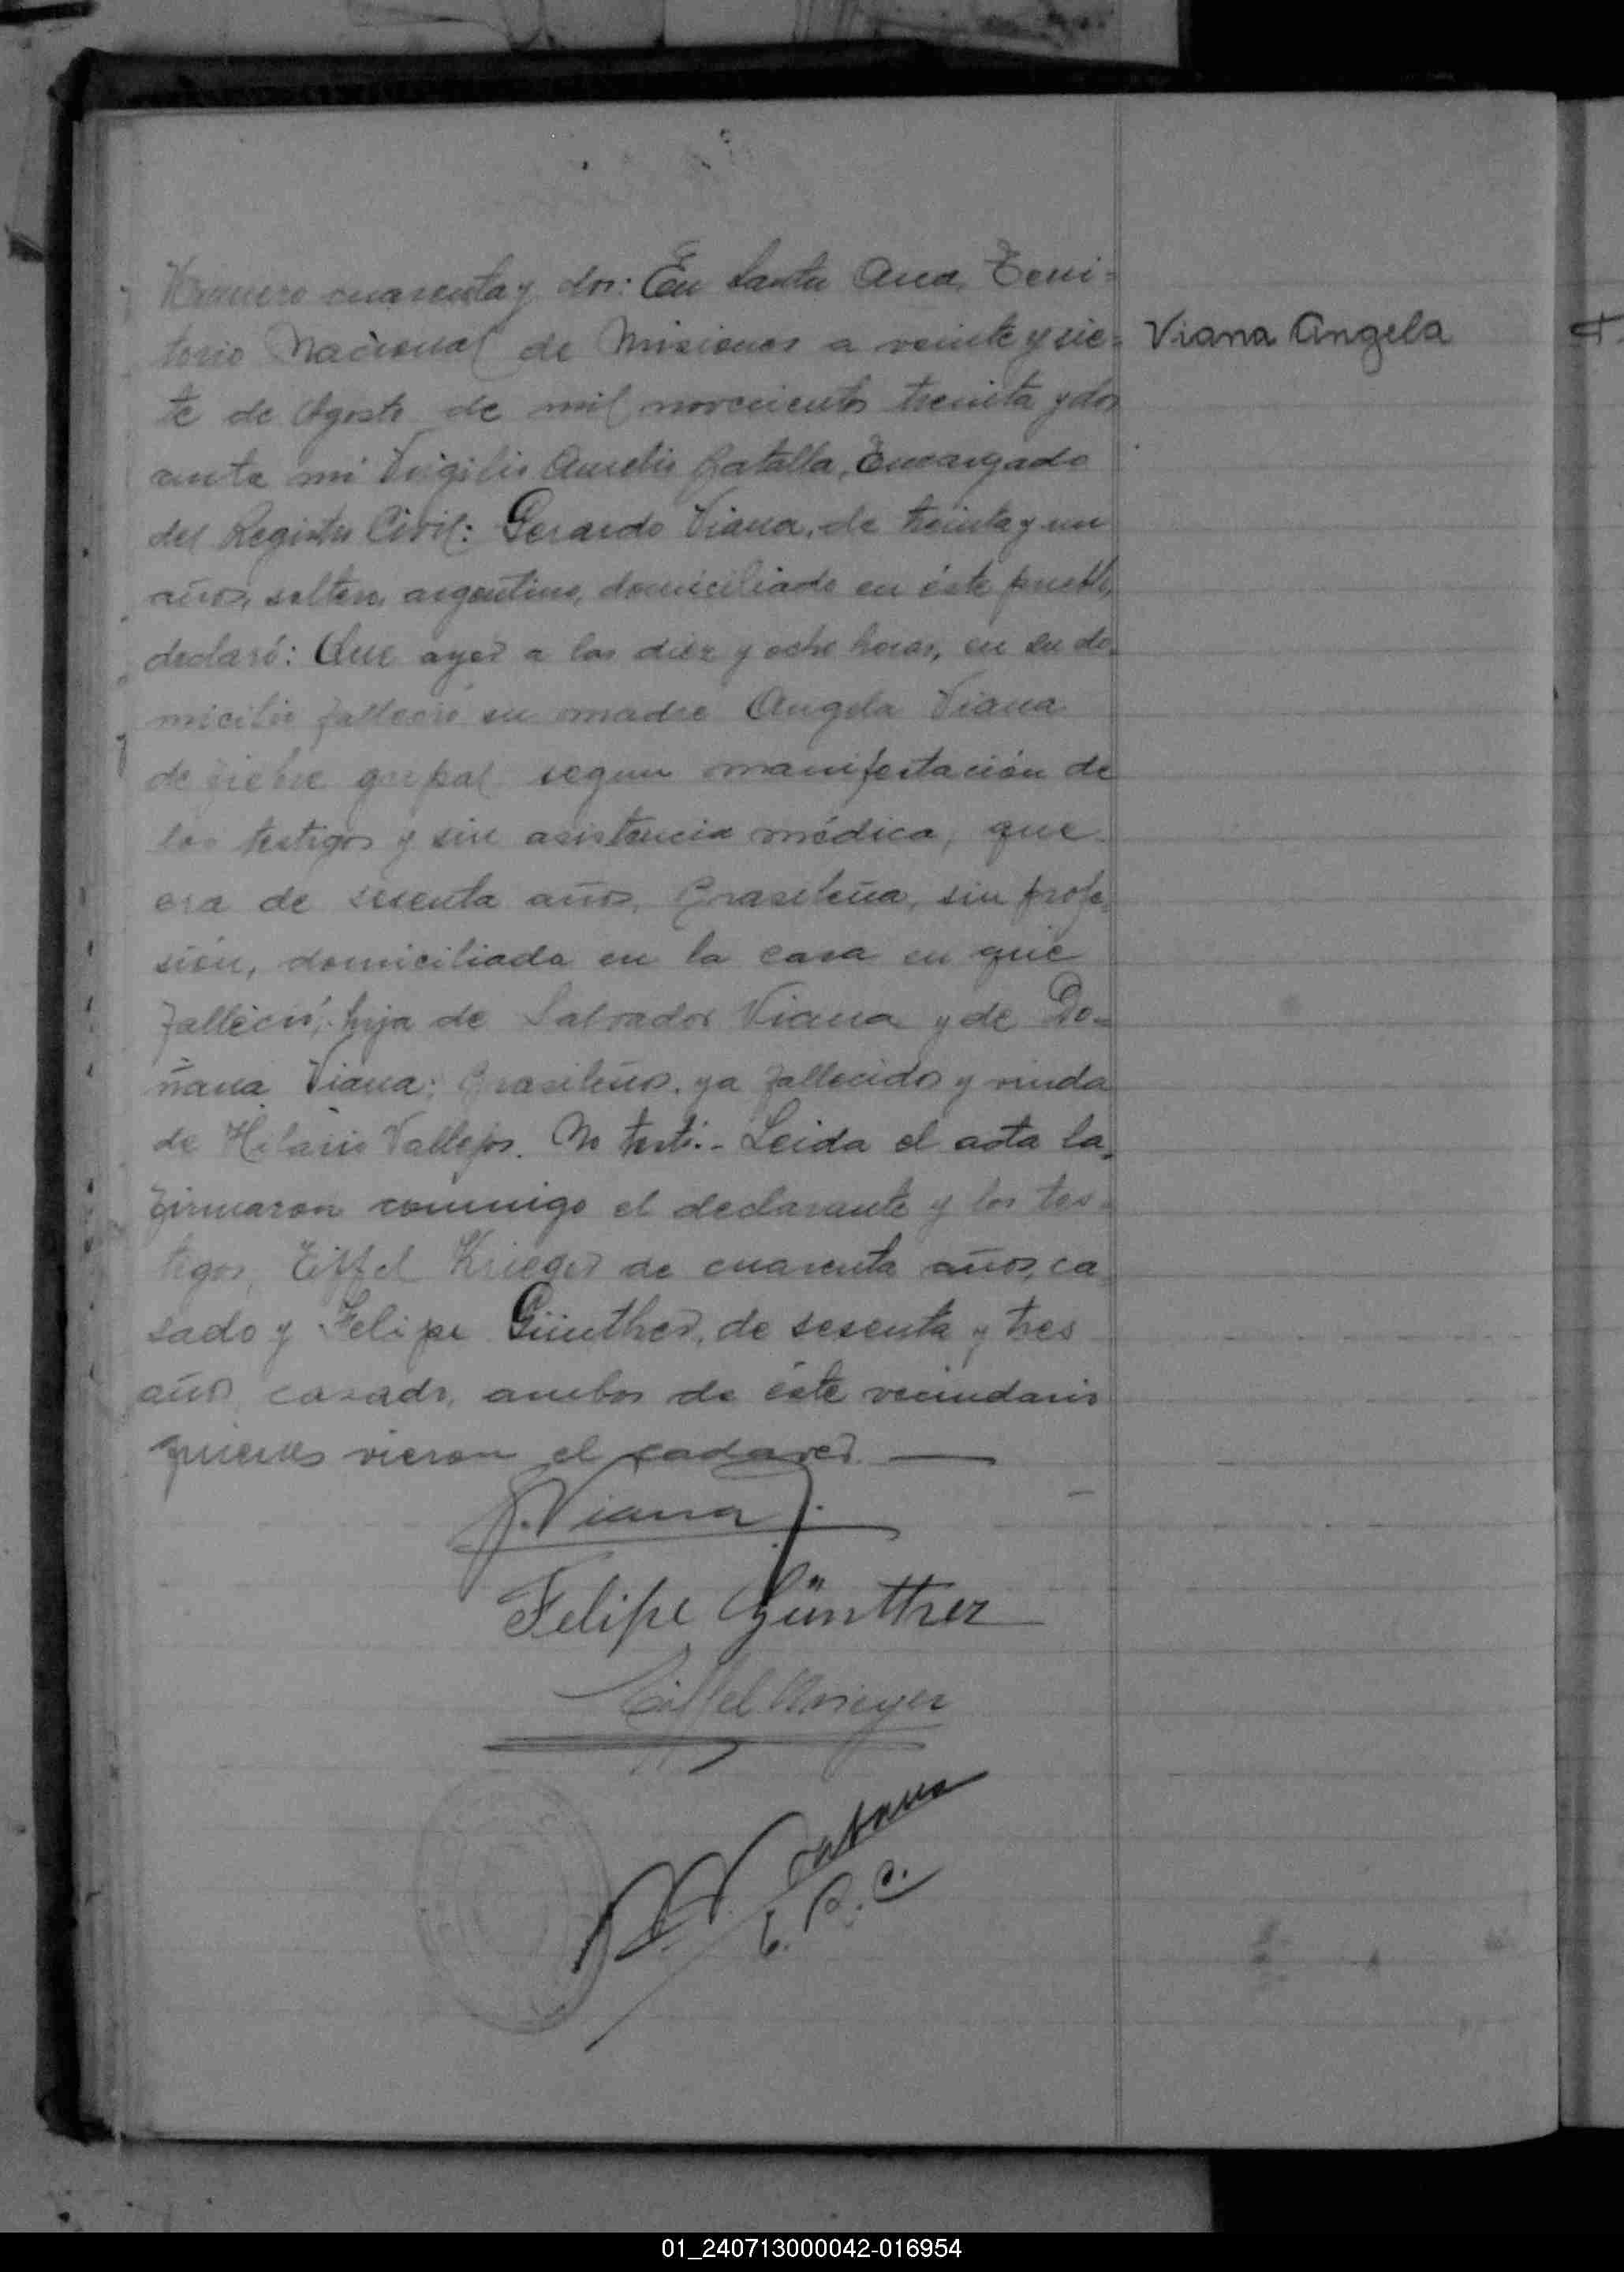 Numero cuarenta y dos: En Santa Ana, Terri=
torio Nacional de Misiones a veinte y sie=
te de Agosto de mil novecientos treinta y dos
ante mi Virgilio Aurelio Batalla, Encargado
del Registro Civil: Gerardo Viana, de treinta y un
años, soltero, argentino, domiciliado en éste pueblo,
declaró: Que ayer a las diez y ocho horas, en su do-
micilio falleció su madre Angela Viana
de fiebre gripal segun manifestación de
los testigos y sin asistencia médica, que
era de sesenta años, brasileña, sin profe-
sión, domiciliada en la casa en que
falleció, hija de Salvador Viana y de Do=
ñana Viana; brasileños, ya fallecidos y viuda
de Hilario Vallejos. No testó.- Leida el acta la
firmaron conmigo el declarante y los tes=
tigos, Eiffel Krieger de cuarenta años, ca
sado y Felipe Günther, de sesenta y tres
años casado, ambos de éste vecindario
quienes vieron el cadaver. —
Viana Angela
G. Viana
Felipe Günther
Eiffel Krieger
E. R. C.
01_240713000042-016954